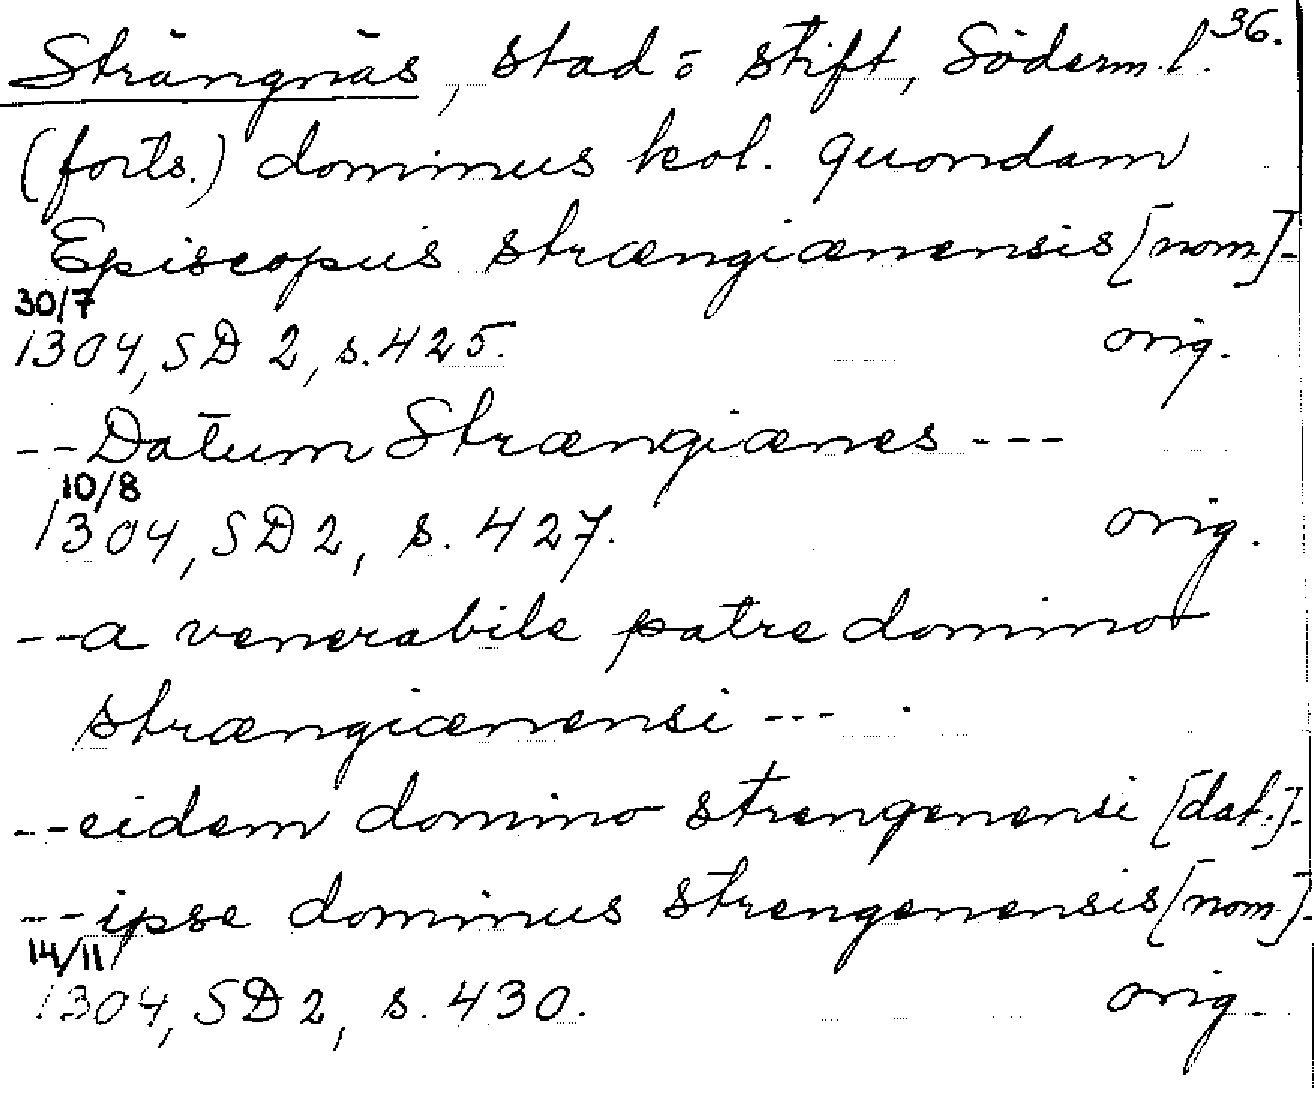 Strängnäs, stad o stift, Söderm.l. 36.
(forts.) dominus kol. quondam
Episcopus strængiænensis [nom]-
30/7
1304, SD 2, s.425. orig.
--Datum Strængiænes ---
10/8
1304, SD2, s. 427. orig.
--a venerabile patre domino
strængiænensi ---
--eidem domino strengenensi [dat.]-
---ipse dominus strengenensis [nom]-
14/11
1304, SD2, s. 430. orig.